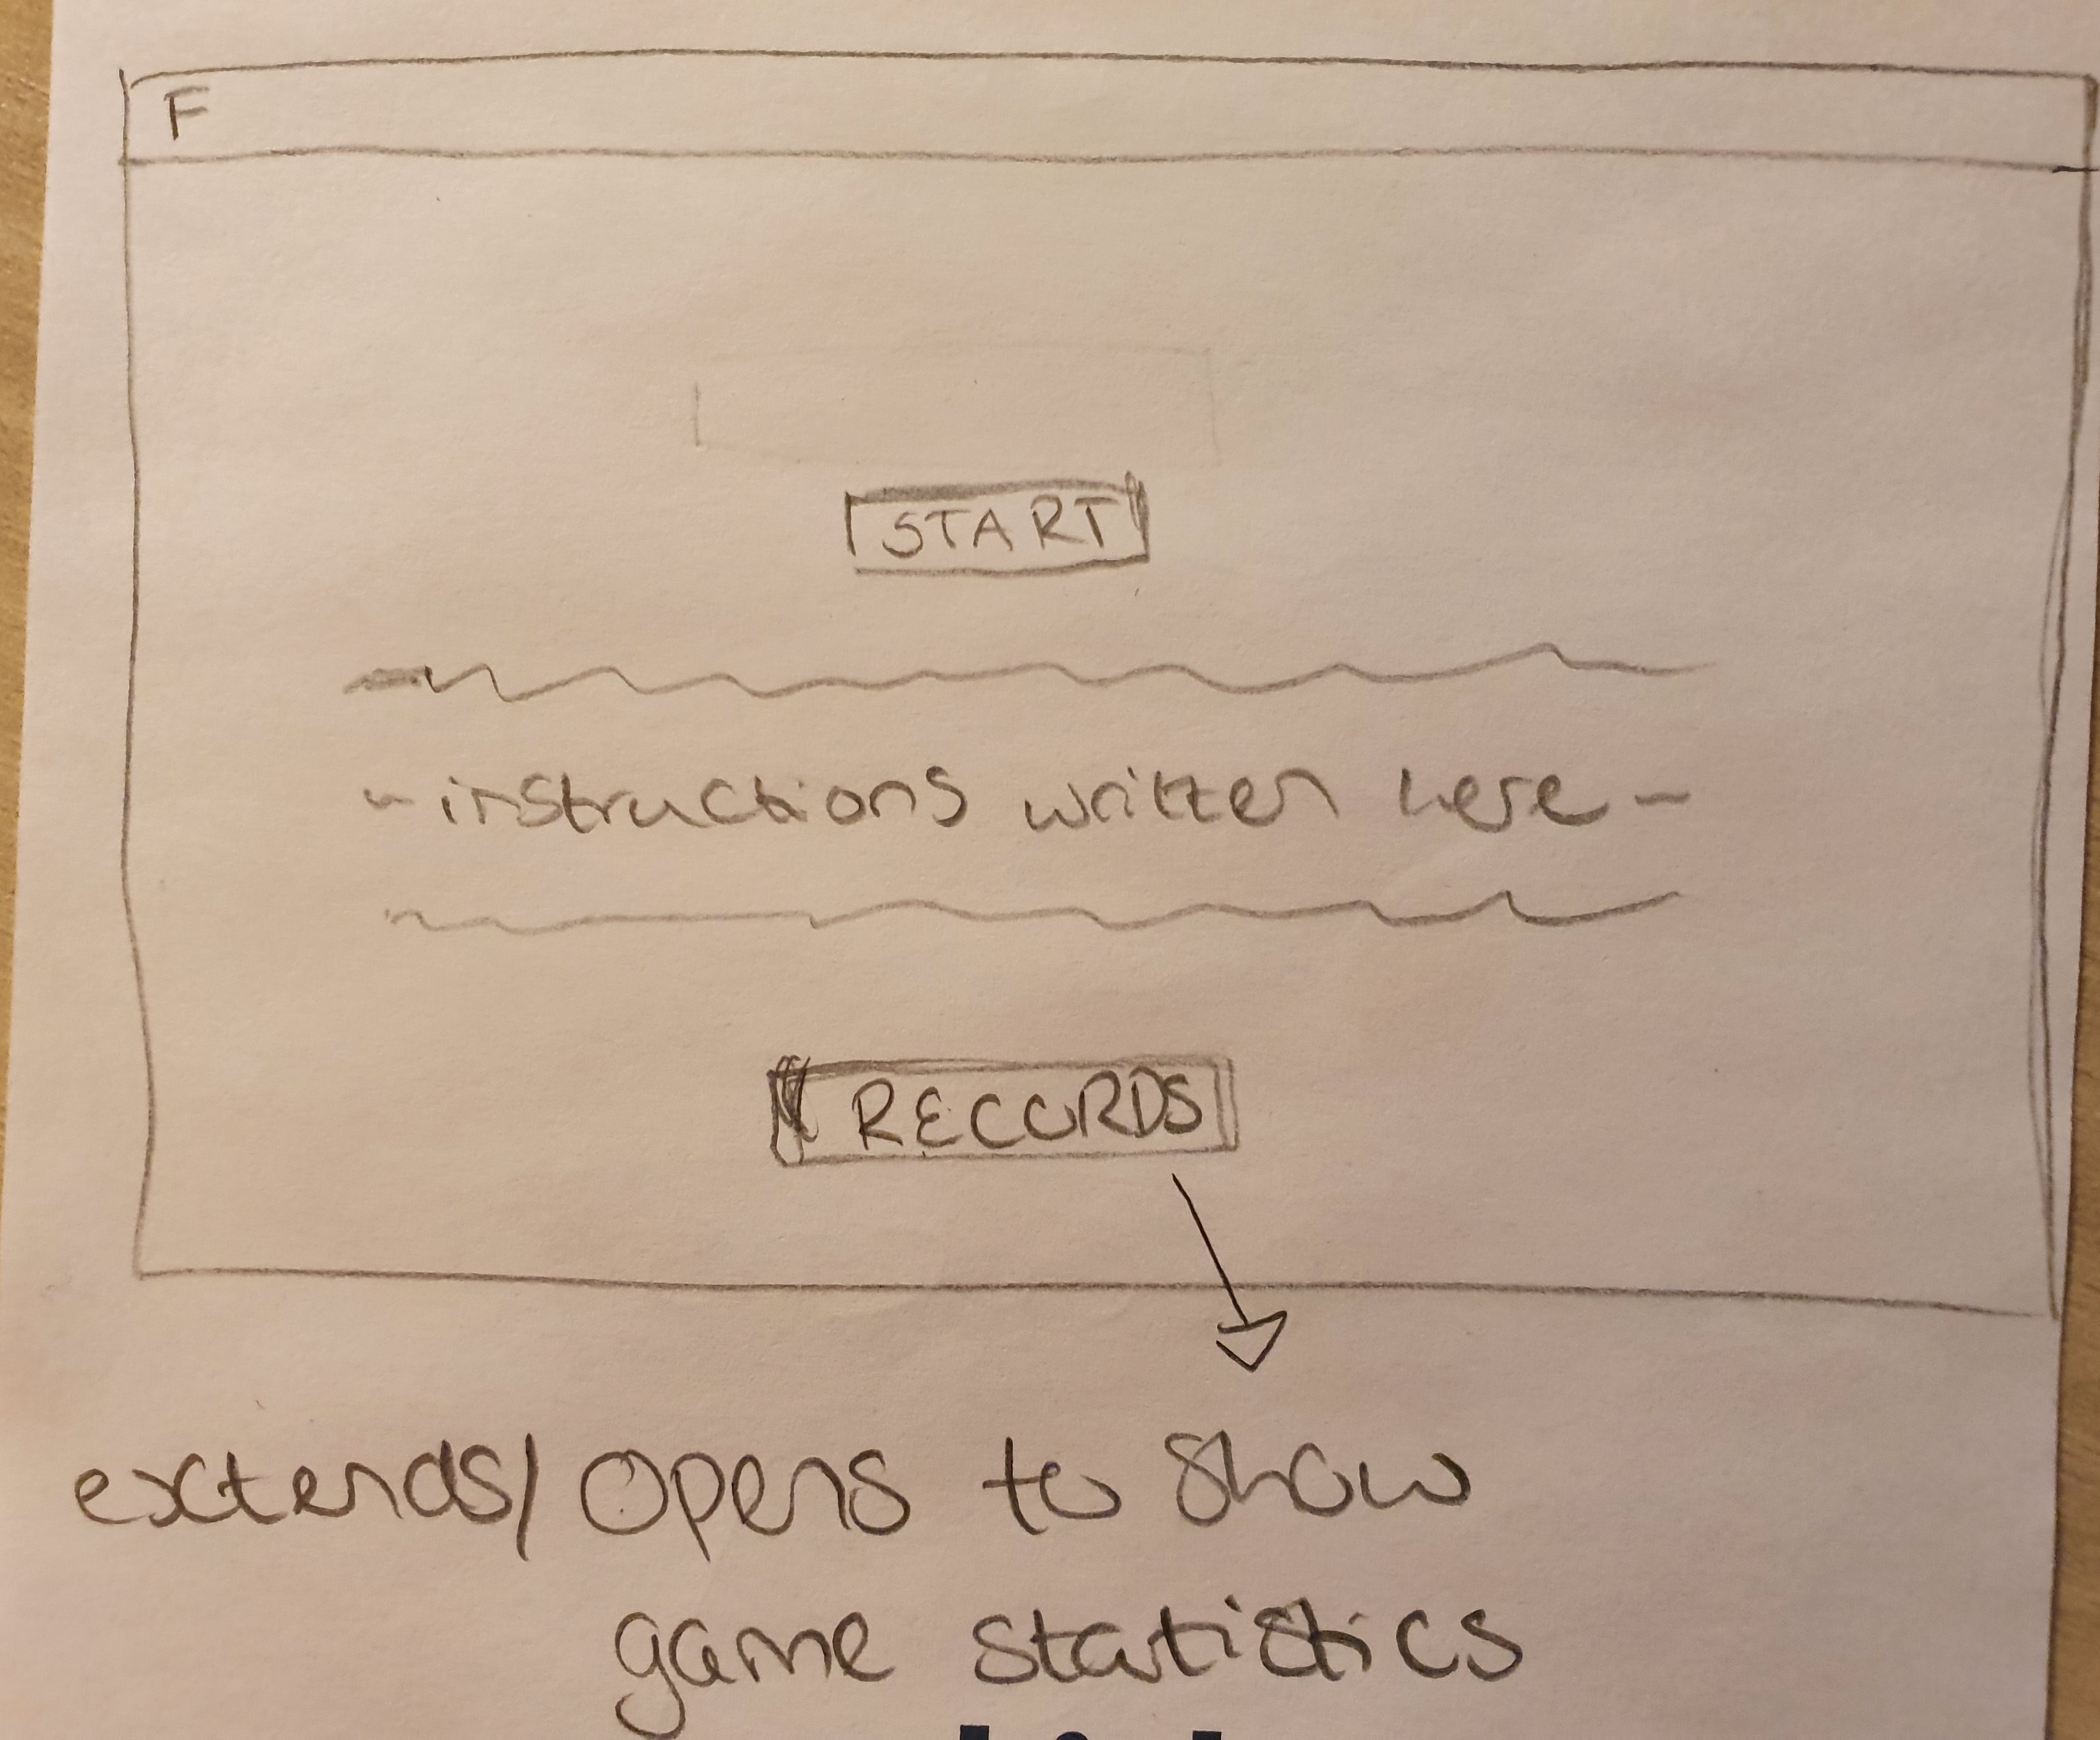 F
START
-instructions written here-
RECORDS
extends/opens to show
game statistics